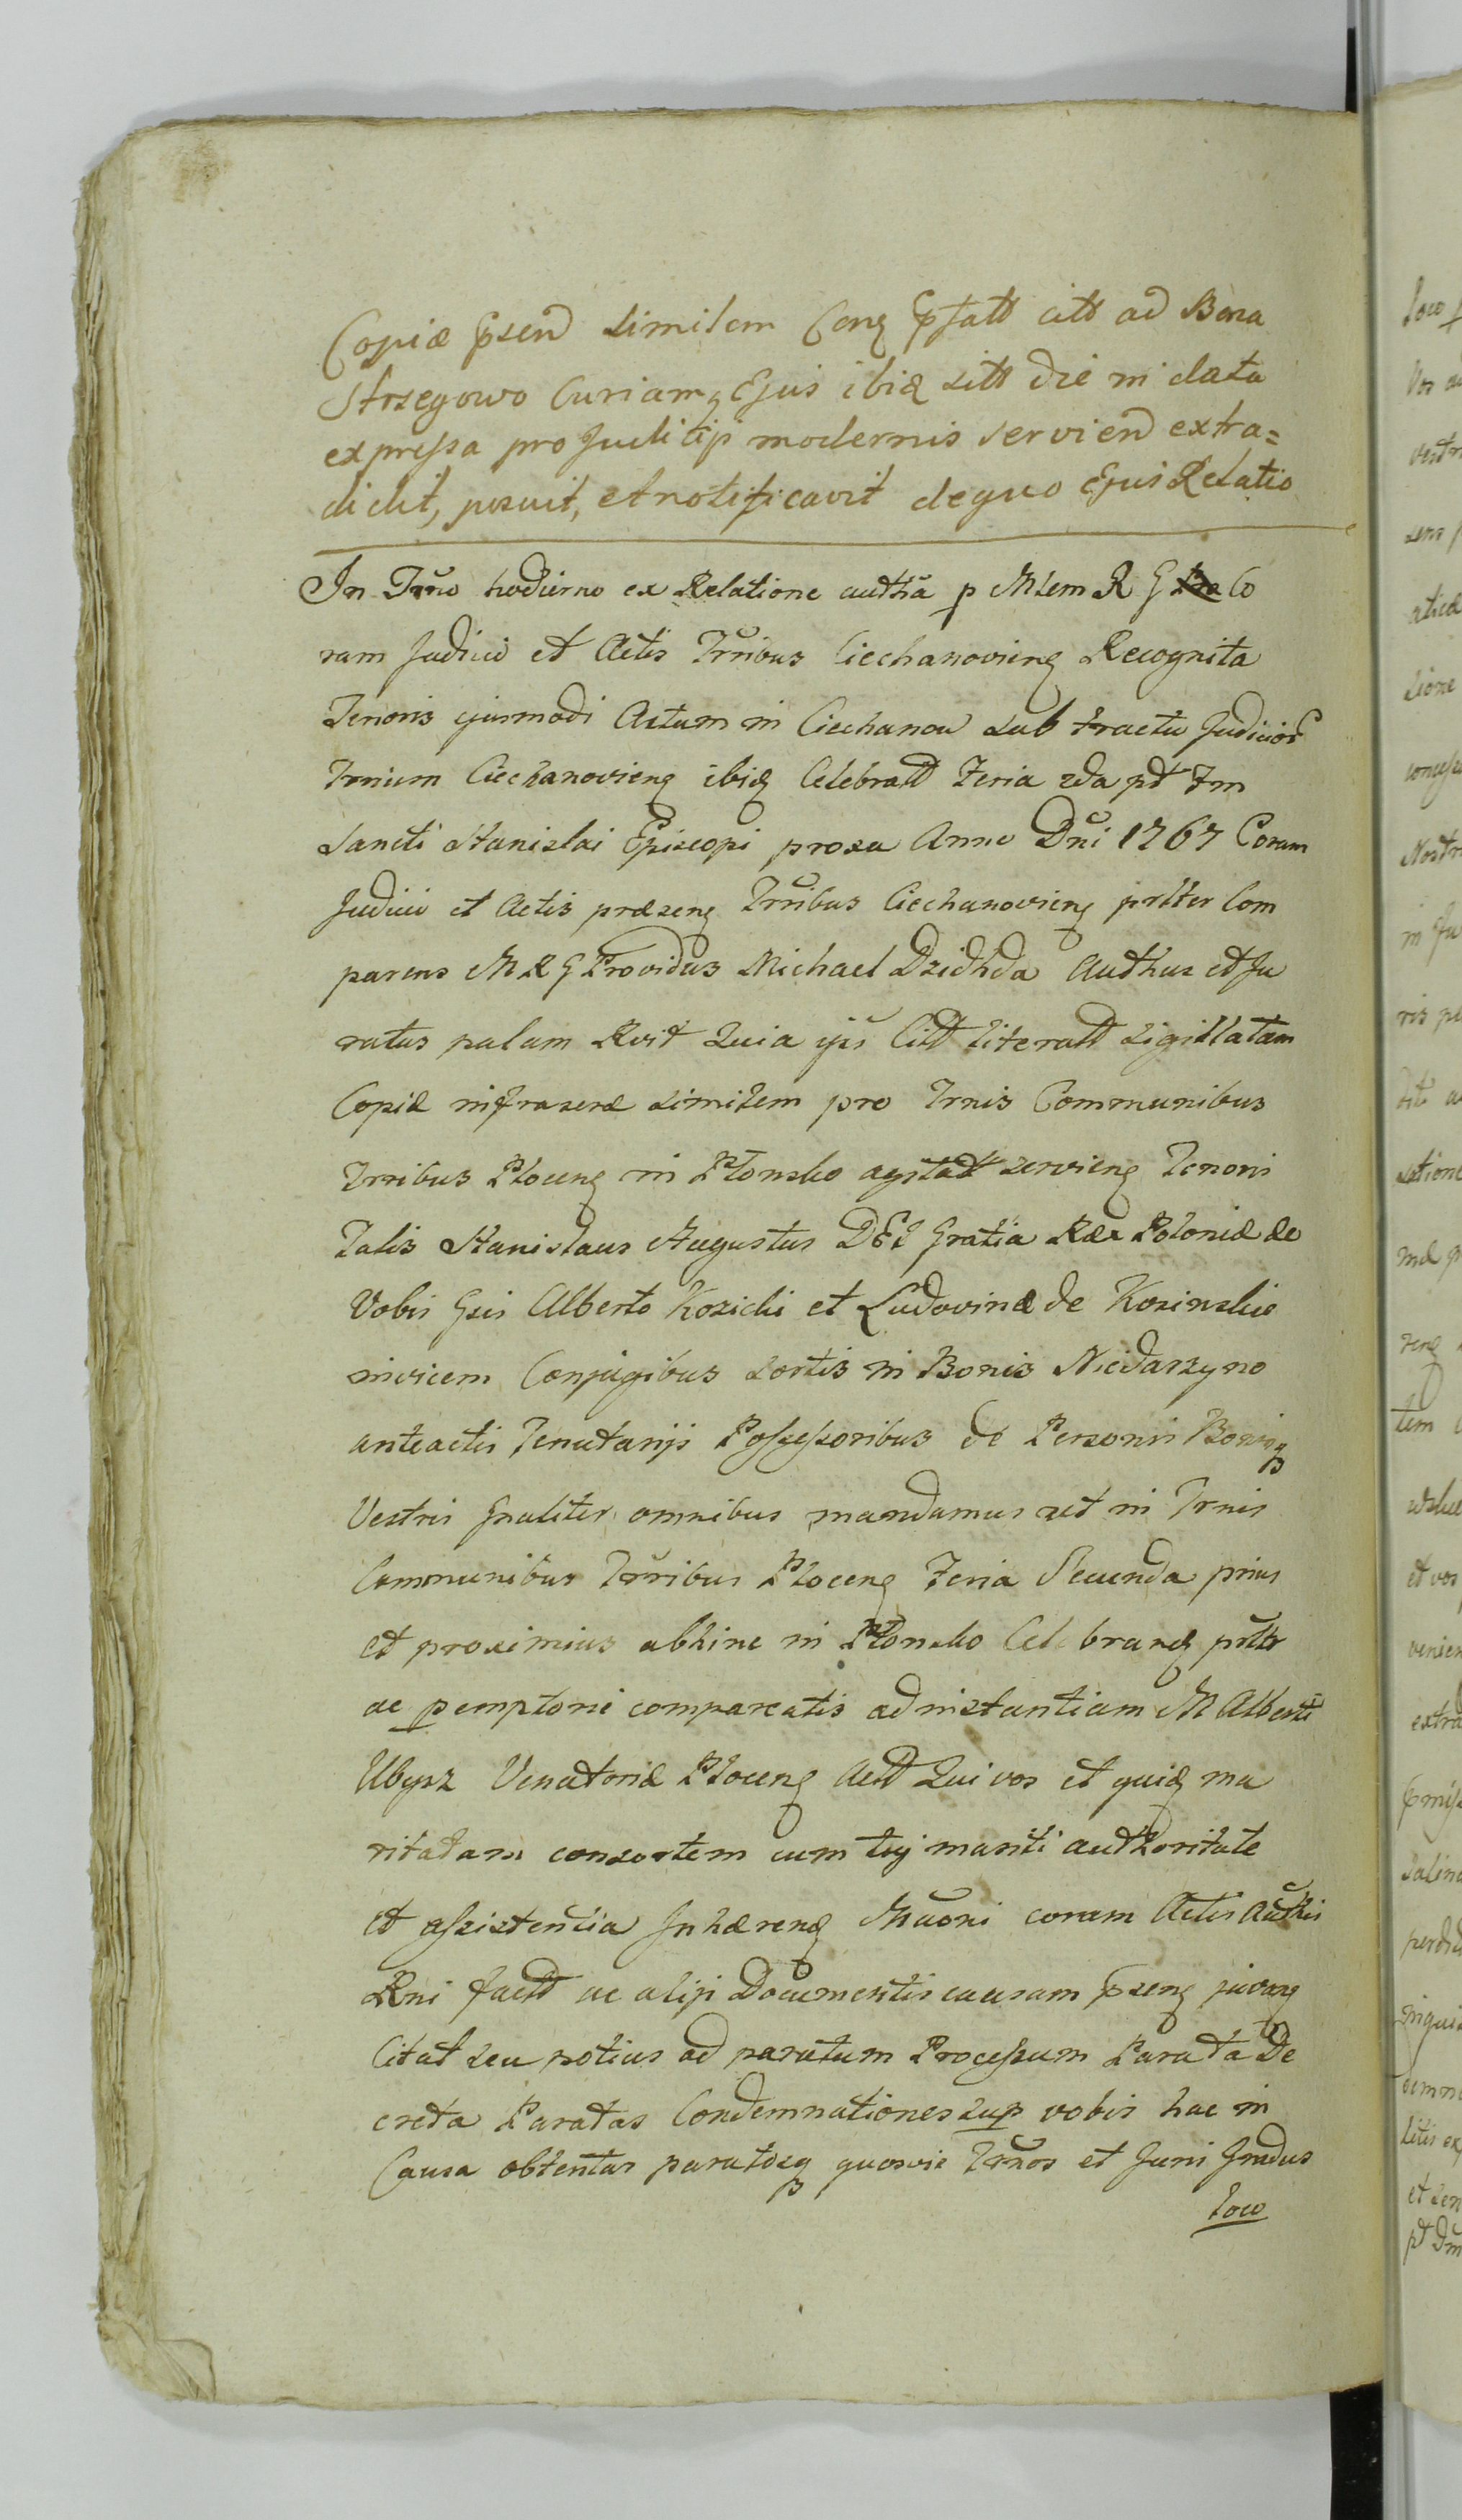 Copiæ psend similem Conq pfatt citt ad Bona
Strzegowo Curiamq Ejus ibiq sitt die in data
expressa pro Judicijs modernis serviend extra=
didit, posuit, et notificavit de quo Ejus Relatio
In Trno hodierno ex Relatione autha p Mlem R G Co
ram Judicio et Actis Trribus Ciechanovieng Recognita
Tenoris ejusmodi Actum in Ciechanow sub tractu Judicior
Trrium Ciechanovieng ibiq Celebratt Feria 2da pt Fm
Sancti Stanislai Episcopi proxa Anno Dni 1767 Coram
Judicio et Actis præseng Trribus Ciechanovieng prltter Com
parens M R G Providus Michael Authus et Ju
ratus palam Rvit Quia ips Citt literatt sigillatam
Copiæ infrasenæ similem pro Trnis Communibus
Trribus Ploceng in Płonsko agitatt servieng Tenoris
Talis Stanislaus Augustus DEI Gratia Rex Poloniæ &c
Vobis Gsis Alberto Kozicki et Ludovinæ de Kosinskie
invicem Conjugibus sortis in Bonis Niedarzyno
anteactis Tenutarijs Possessoribus de Personis Bonisq
Vestris Gnaliter omnibus mandamus ut in Trnis
Communibus Trribus Ploceng Feria Secunda prius
et proximius abhinc in Płonsko Celebrang prltter
ac pemptorie compareatis ad instantiam M Alberti
Ubysz Venatoriæ Ploceng Actt Qui vos et quiq ma
ritatam consortem cum tuj mariti authoritate
et assistencia Inhæreng Mnoni coram Actis Authis
Rni factt ac alijs Documentis causam pseng juvang
Citat seu potius ad paratum Processum Parata De
creta Paratas Condemnationes sup vobis hac in
Causa obtentas paratosq quosvis Trnos et Juris Gradus
loco